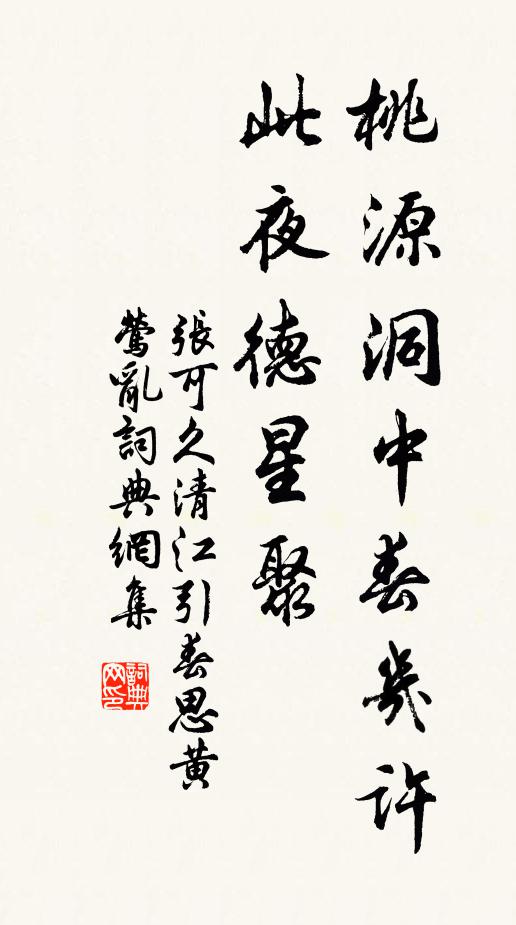 桃源洞中春幾許
此夜德星聚
張可久清江引春思黄
鶯亂詞典網集
詞典网印